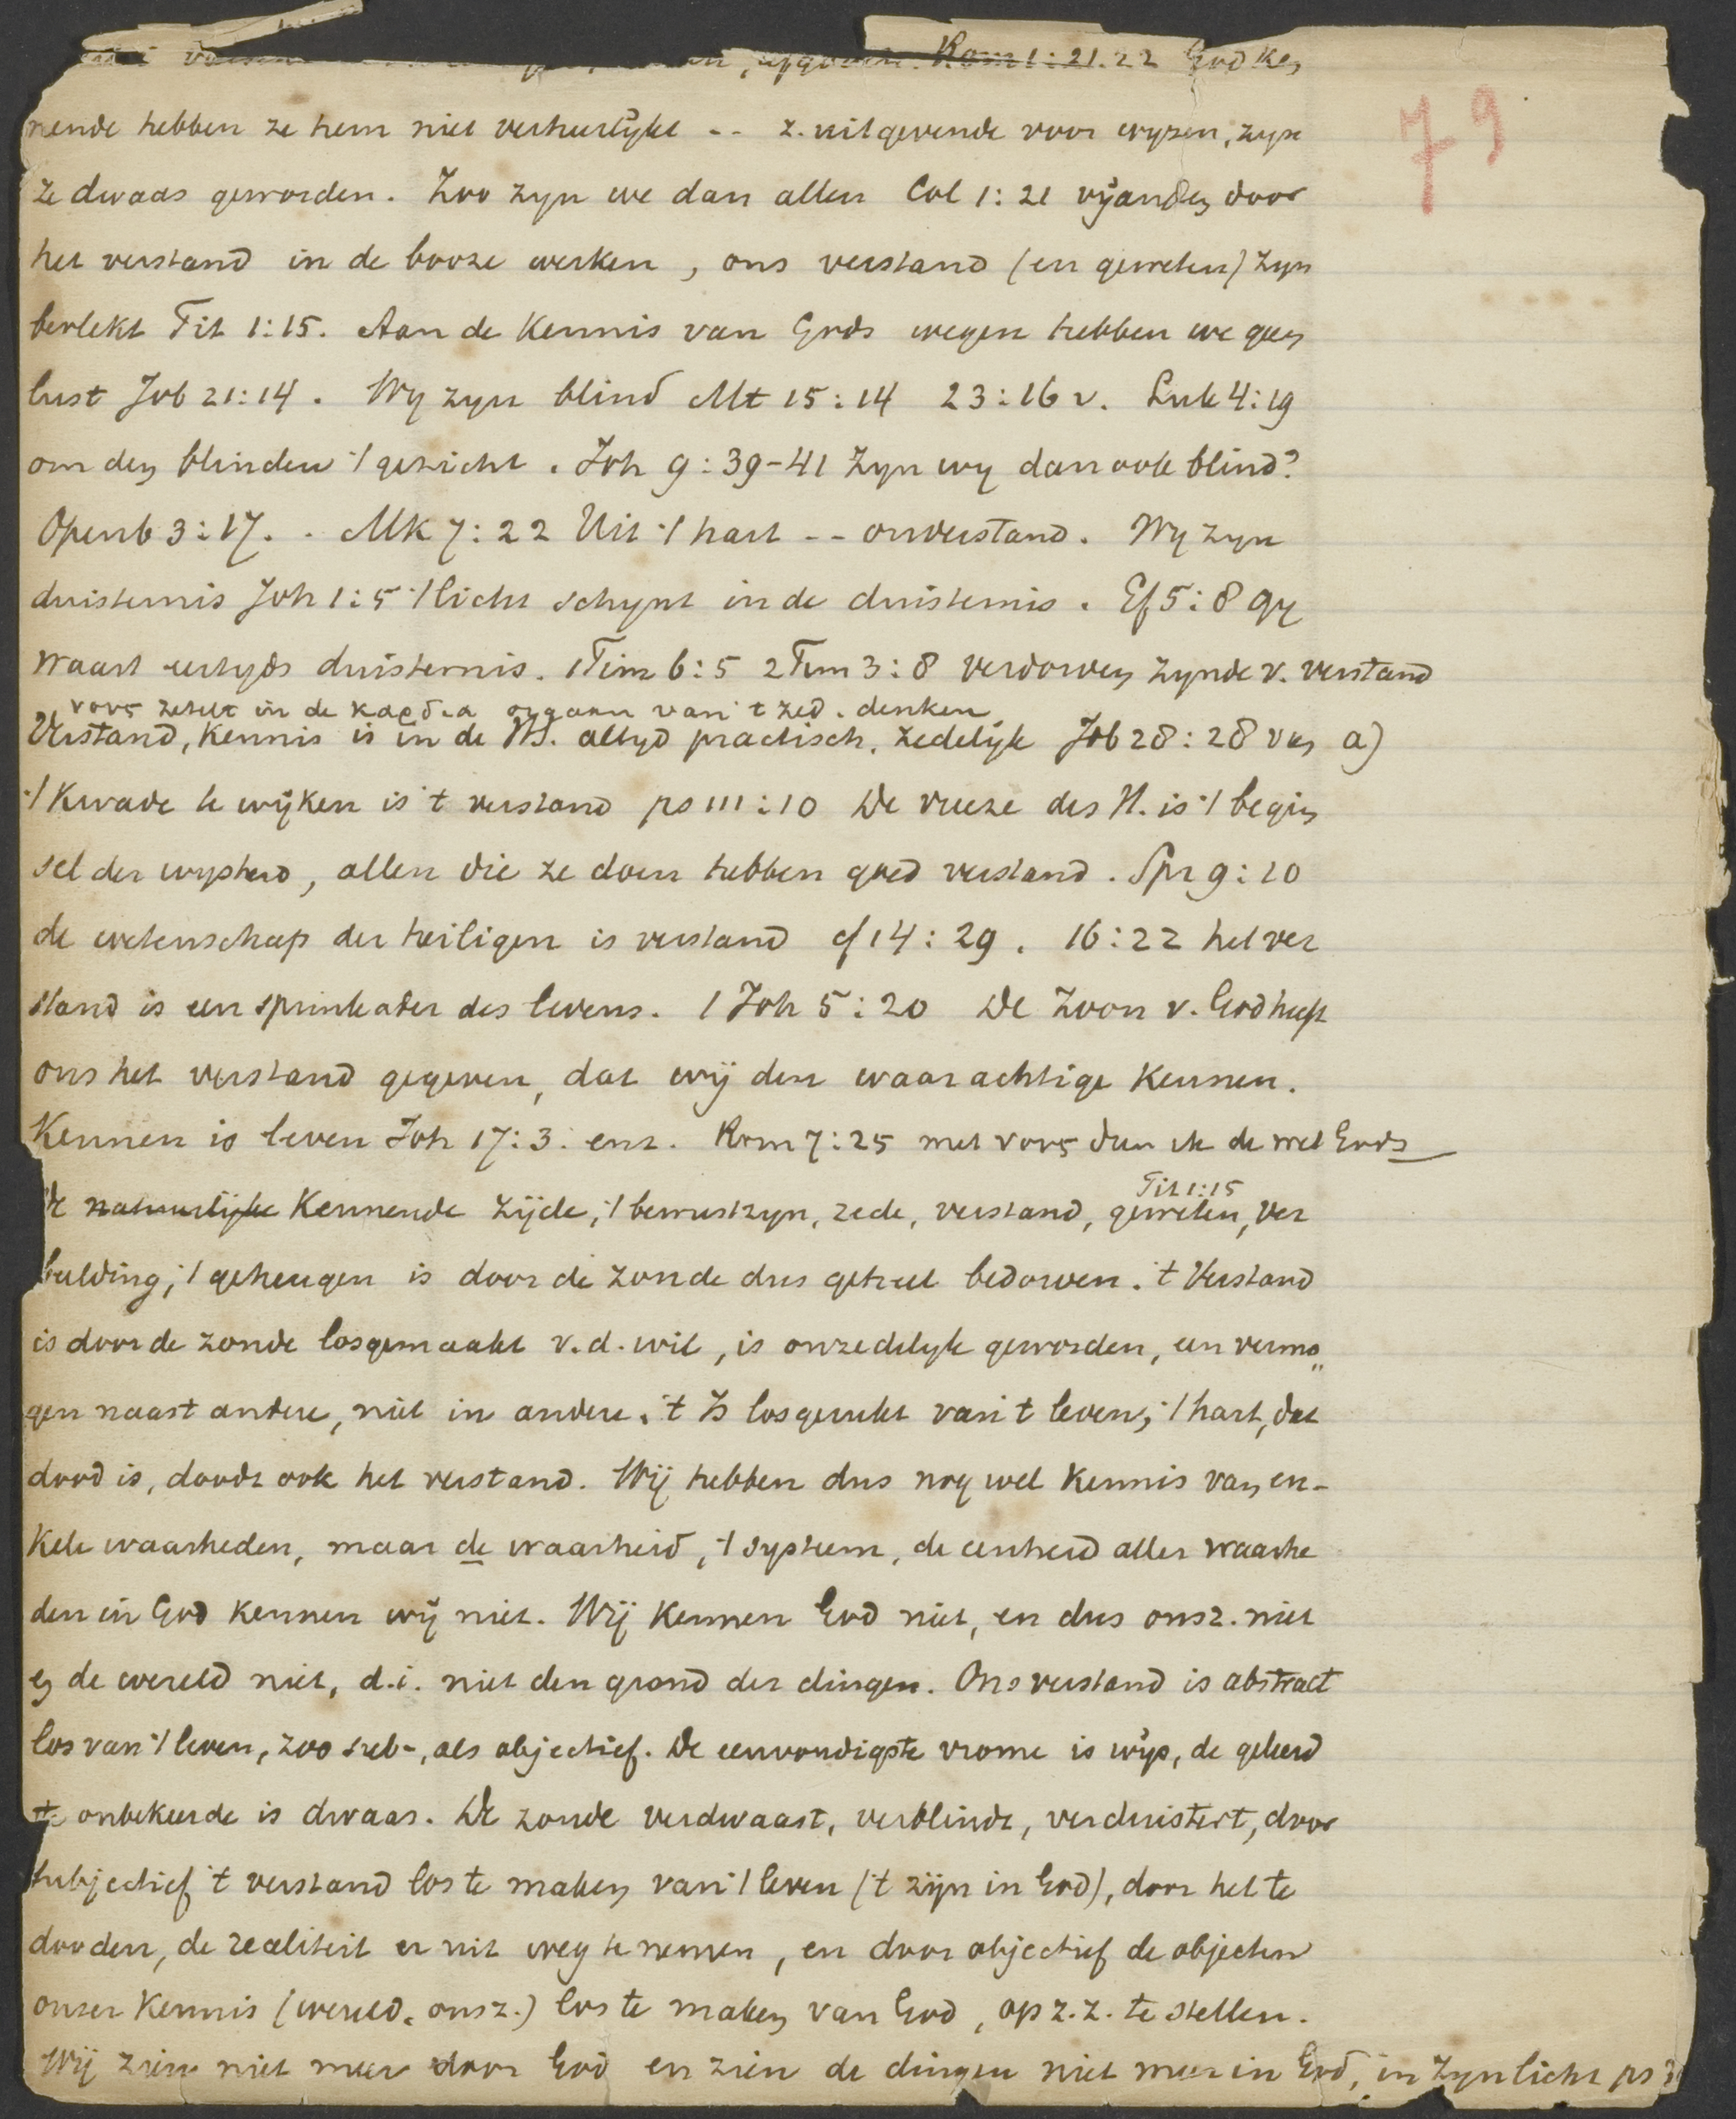 Rom 1:21.22 God ken
nende hebben ze hem niet verheerlijkt -- z. uitgevende voor wyzen, zyn
ze dwaas geworden. Zoo zyn we dan allen Col 1:21 vijanden door
het verstand in de booze werken, ons verstand (en geweten) zyn
bevlekt Tit 1:15. Aan de Kennis van Gods wegen hebben we geen
lust Job 21:14. Wy zyn blind Mt 15:14 23:16 v. Luk 4:19
om den blinden 't gezicht. Joh 9:39-41 Zyn wy dan ook blind?
Openb 3:17. . Mk 7:22 Uit 't hart -- onverstand. Wy zyn
duisternis Joh 1:5 't licht schynt in de duisternis. Ef 5:8 gy
waart eertyds duisternis. 1 Tim 6:5 2 Tim 3:8 verdorven zynde v. verstand
νους zetelt in de καρδια orgaan van 't zed. denken
Verstand, Kennis is in de HS. altyd practisch, zedelijk Job 28:28 van a)
't Kwade te wijken is 't verstand ps 111:10 De vreeze des H. is 't begin
sel der wysheid, allen die ze doen hebben goed verstand. Spr 9:10
de wetenschap der heiligen is verstand cf 14:29. 16:22 het ver
stand is een springader des levens. 1 Joh 5:20 De Zoon v. God heeft
ons het verstand gegeven, dat wij den waarachtige Kennen.
Kennen is leven Joh 17:3. enz. Rom 7:25 met νους dien ik de wet Gods
De natuurlijke Kennende Zijde, 't bewustzyn, rede, verstand, geweten, ver
Tit 1:15
beelding, 't geheugen is door de zonde dus geheel bedorven. 't Verstand
is door de zonde losgemaakt v.d. wil, is onzedelyk geworden, een vermo„
gen naast andere, niet in andere. 't Is losgerukt van 't leven, 't hart, dat
dood is, doodt ook het verstand. Wij hebben dus nog wel Kennis van en-
kele waarheden, maar de waarheid, 't systeem, de eenheid aller waarhe
den in God Kennen wij niet. Wij Kennen God niet, en dus onsz. niet
en de wereld niet, d.i. niet den grond der dingen. Ons verstand is abstract
los van 't leven, zoo sub-, als objectief. De eenvoudigste vrome is wijs, de geleerd
ste onbekeerde is dwaas. De zonde verdwaast, verblindt, verduistert, door
subjectief 't verstand los te maken van 't leven ('t zijn in God), door het te
dooden, de realiteit er uit weg te nemen, en door objectief de objecten
onzer Kennis (wereld, onsz.) los te maken van God, op z.z. te stellen.
Wij zien niet meer door God en zien de dingen niet meer in God, in Zyn licht ps
79